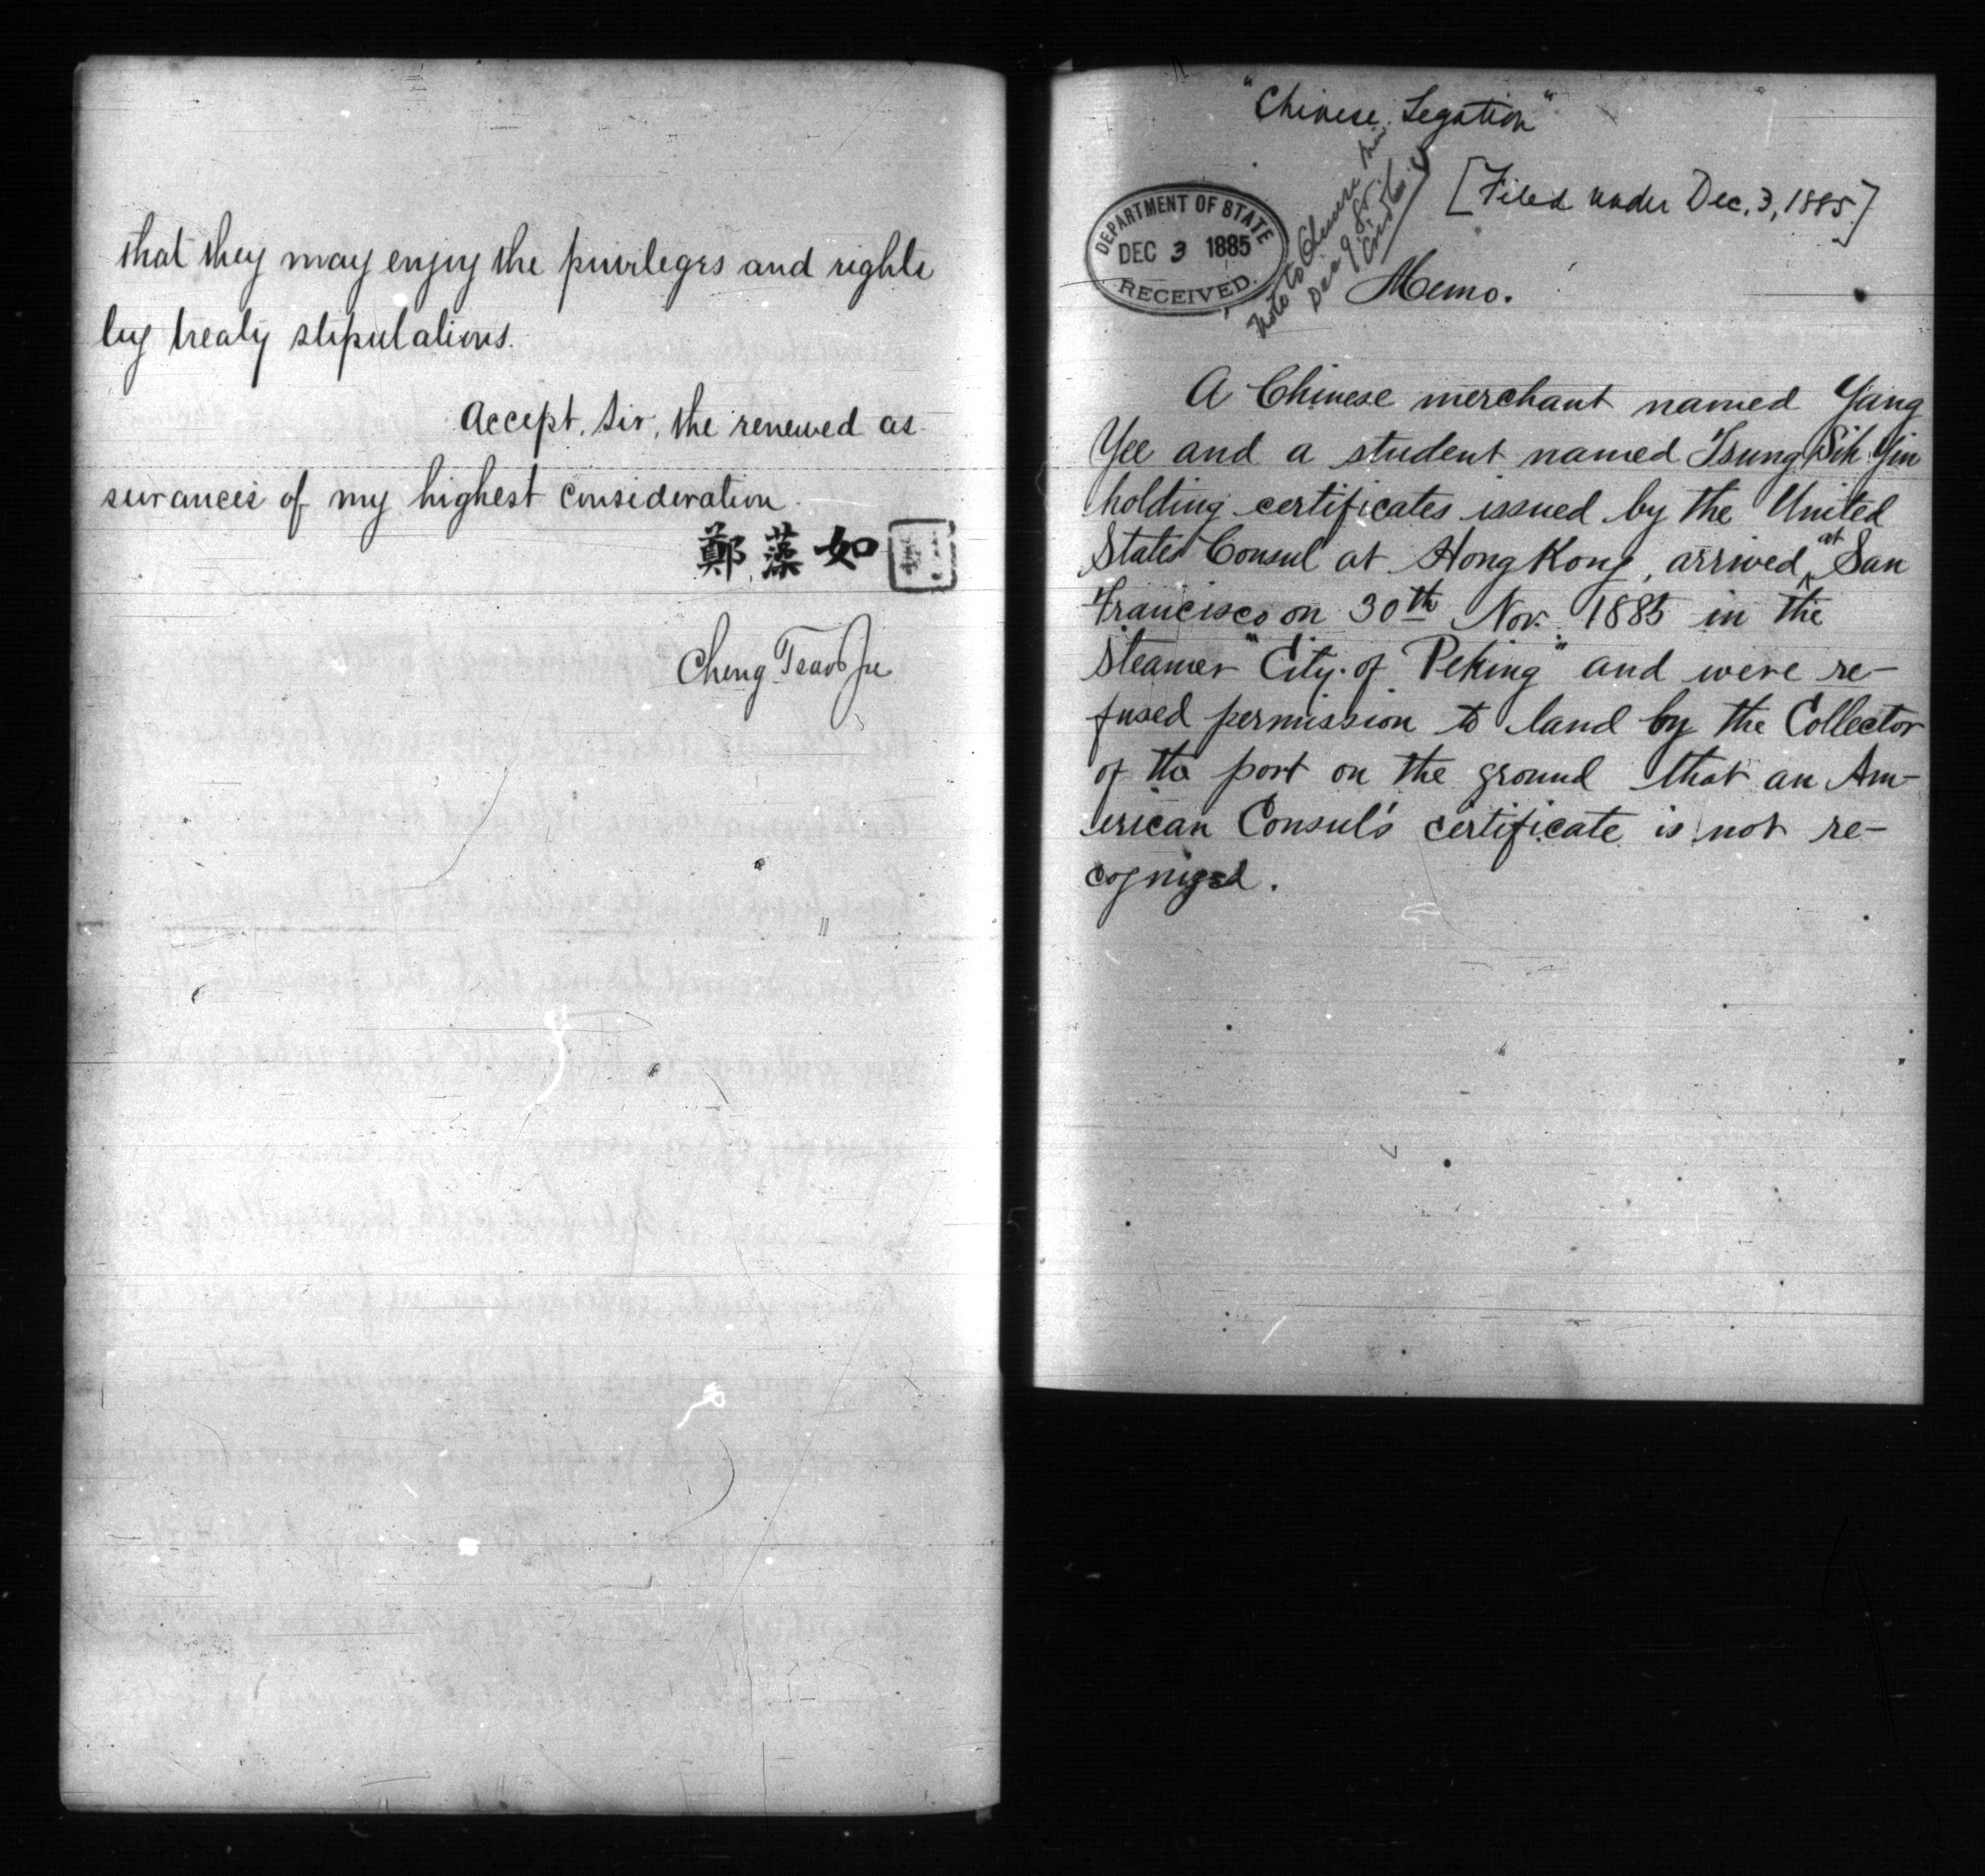 that they may enjoy the privileges and rights
by treaty stipulations.
Accept, Sir, the renewed as-
surances of my highest consideration.
鄭藻如
Cheng Tsao Ju
"Chinese Legation"
[Filed under Dec. 3, 1885]
DEPARTMENT OF STATE
DEC 3 1885
RECEIVED.
Note to Chinese Min
Dec 9 85
Memo.
A Chinese merchant named Yang
Yee and a student named Tsung Sih Yin
holding certificates issued by the United
States Consul at Hong Kong, arrived at San
Francisco on 30th Nov. 1885 in the
Steamer "City of Peking" and were re-
fused permission to land by the Collector
of the port on the ground that an Am-
erican Consul's certificate is not re-
cognized.